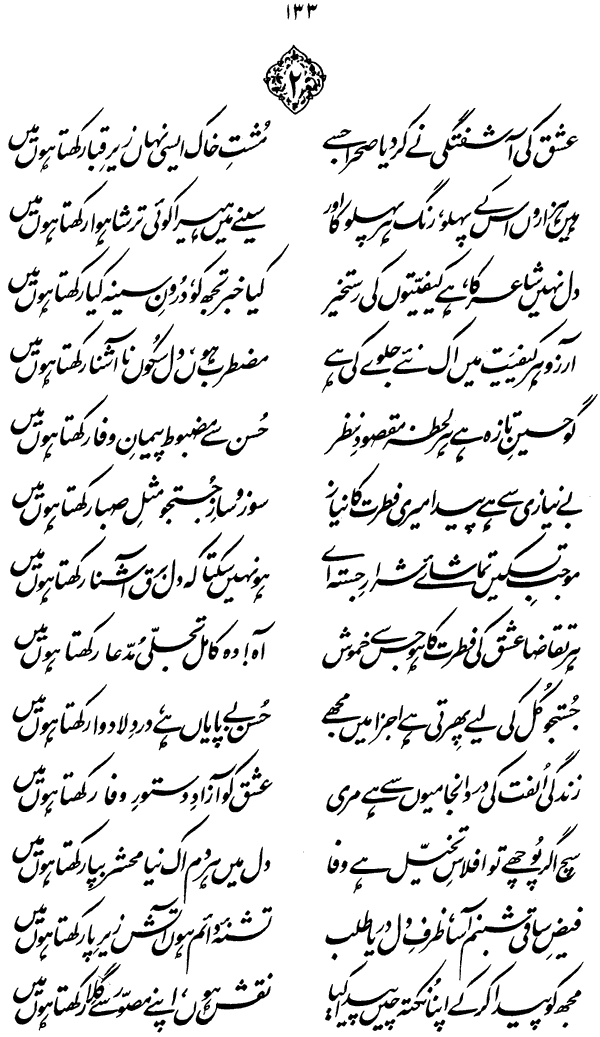 ۱۳۳
۲
عشق کی آشفتگی نے کر دیا صحرا جسے مُشتِ خاک ایسی نہاں زیرِ قبا رکھتا ہوں میں
ہیں ہزاروں اس کے پہلو، رنگ ہر پہلو کا اور سینے میں ہیرا کوئی ترشا ہوا رکھتا ہوں میں
دل نہیں شاعر کا، ہے کیفیّتوں کی رستخیز کیا خبر تجھ کو، دُرونِ سینہ کیا رکھتا ہوں میں
آرزو ہر کیفیت میں اک نئے جلوے کی ہے مضطرب ہوں، دل سکُوں نا آشنا رکھتا ہوں میں
گو حسینِ تازہ ہے ہر لحظہ مقصودِ نظر حُسن سے مضبوط پیمانِ وفا رکھتا ہوں میں
بے نیازی سے ہے پیدا میری فطرت کا نیاز سوز و سازِ جُستجو مثلِ صبا رکھتا ہوں میں
موجبِ تسکیں تماشائے شرارِ جستہ اے ہو نہیں سکتا کہ دل برق آشنا رکھتا ہوں میں
ہر تقاضا عشق کی فطرت کا ہو جس سے خموش آہ! وہ کامل تجلّی مُدّعا رکھتا ہوں میں
جُستجو کُل کی لیے پھرتی ہے اجزا میں مجھے حُسن بے پایاں ہے، دردِ لادوا رکھتا ہوں میں
زندگی اُلفت کی درد انجامیوں سے ہے مری عشق کو آزادِ دستورِ وفا رکھتا ہوں میں
سچ اگر پُوچھے تو افلاسِ تخیّل ہے وفا دل میں ہر دم اک نیا محشر بپا رکھتا ہوں میں
فیضِ ساقی شبنم آسا، ظرفِ دل دریا طلب تشنۂ دائم ہوں آتش زیرِ پا رکھتا ہوں میں
مجھ کو پیدا کر کے اپنا نُکتہ چیں پیدا کیا نقش ہوں، اپنے مصوّر سے گِلا رکھتا ہوں میں